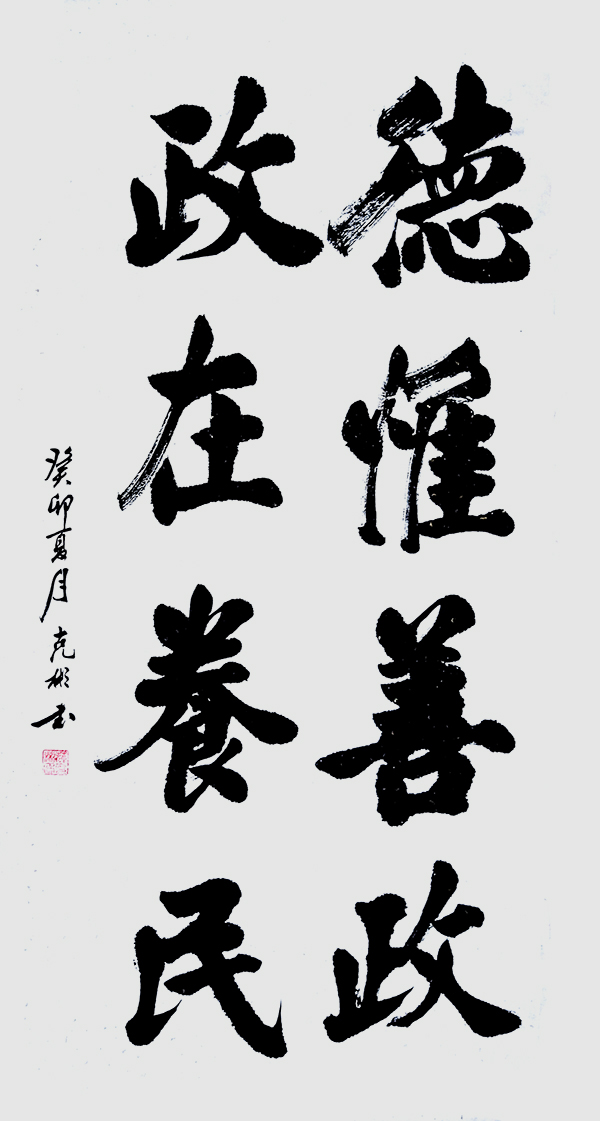 德惟善政
政在養民
癸卯夏月克彬书